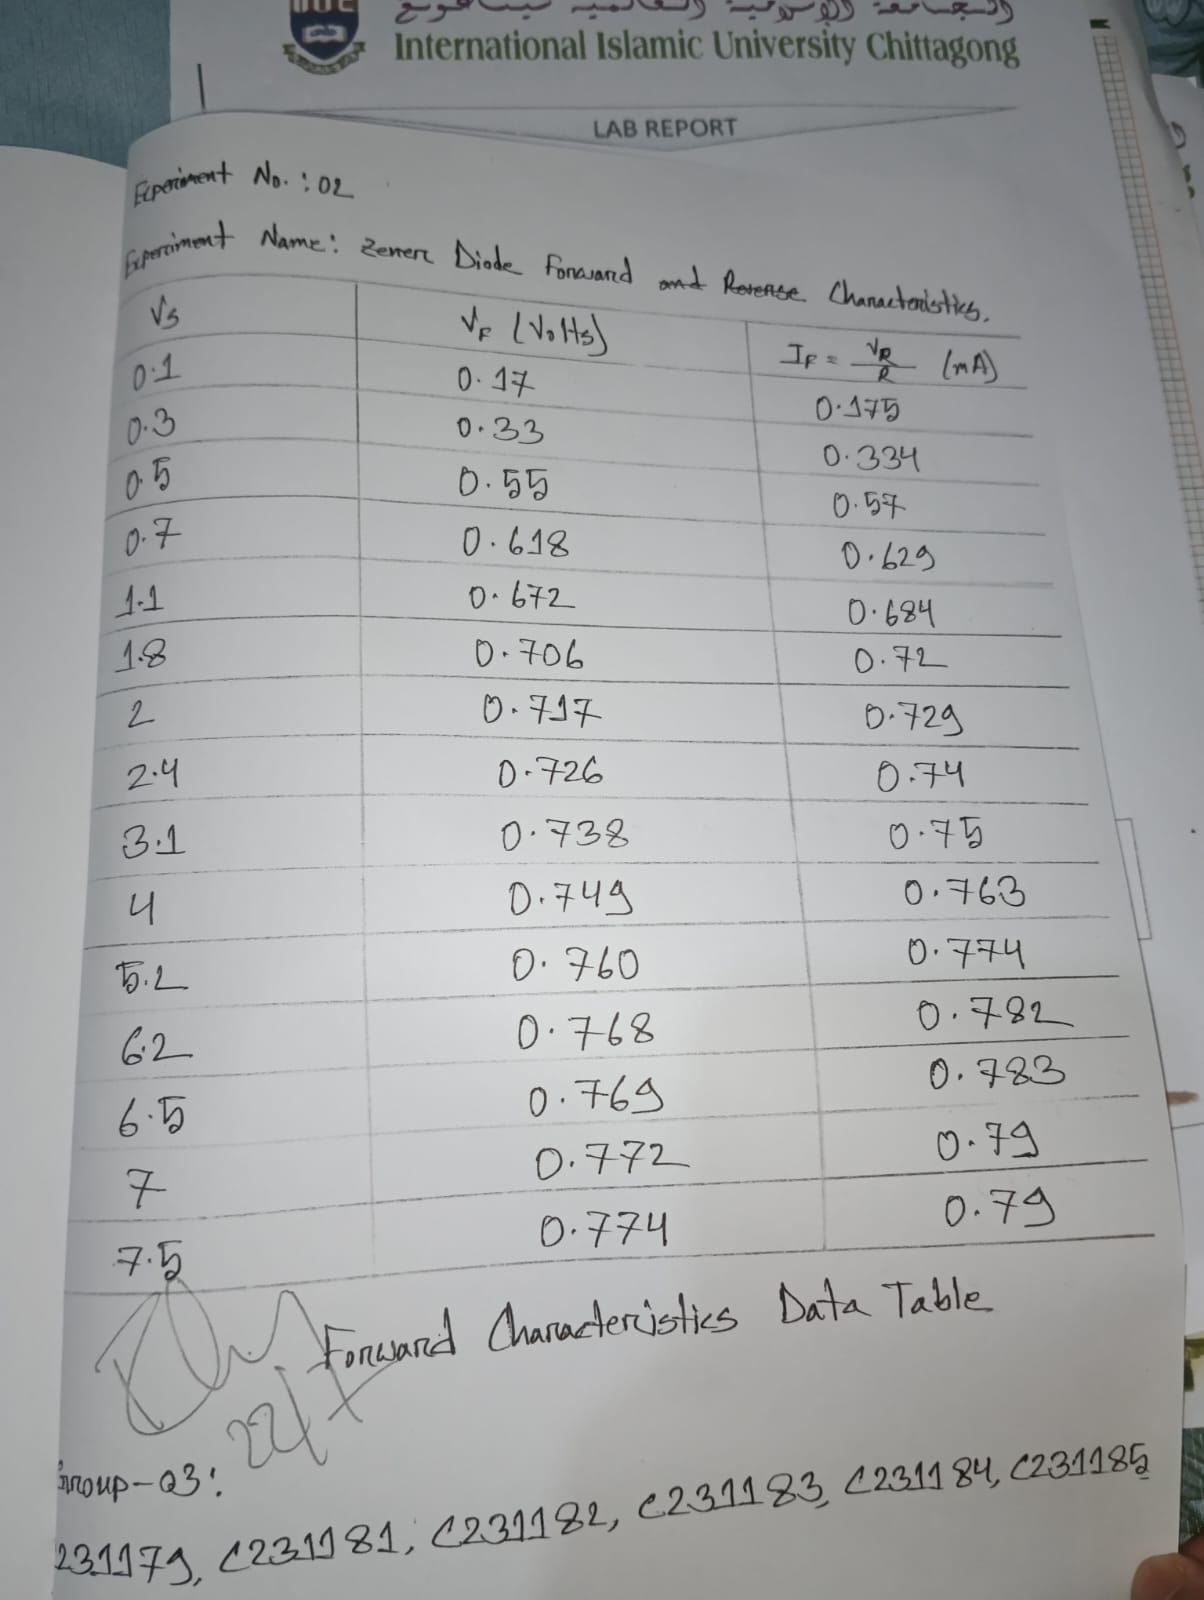 International Islamic University Chittagong
LAB REPORT
Experiment No. : 02
Experiment Name: Zener Diode Forward and Reverse Characteristics.
Vs VF (Volts) IF = VR/R (mA)
0.1 0.17 0.175
0.3 0.33 0.334
0.5 0.55 0.57
0.7 0.618 0.629
1.1 0.672 0.684
1.8 0.706 0.72
2 0.717 0.729
2.4 0.726 0.74
3.1 0.738 0.75
4 0.749 0.763
5.2 0.760 0.774
6.2 0.768 0.782
6.5 0.769 0.783
7 0.772 0.79
7.5 0.774 0.79
Forward Characteristics Data Table
22/7
Group-03:
231179, C231181, C231182, C231183, C231184, C231185